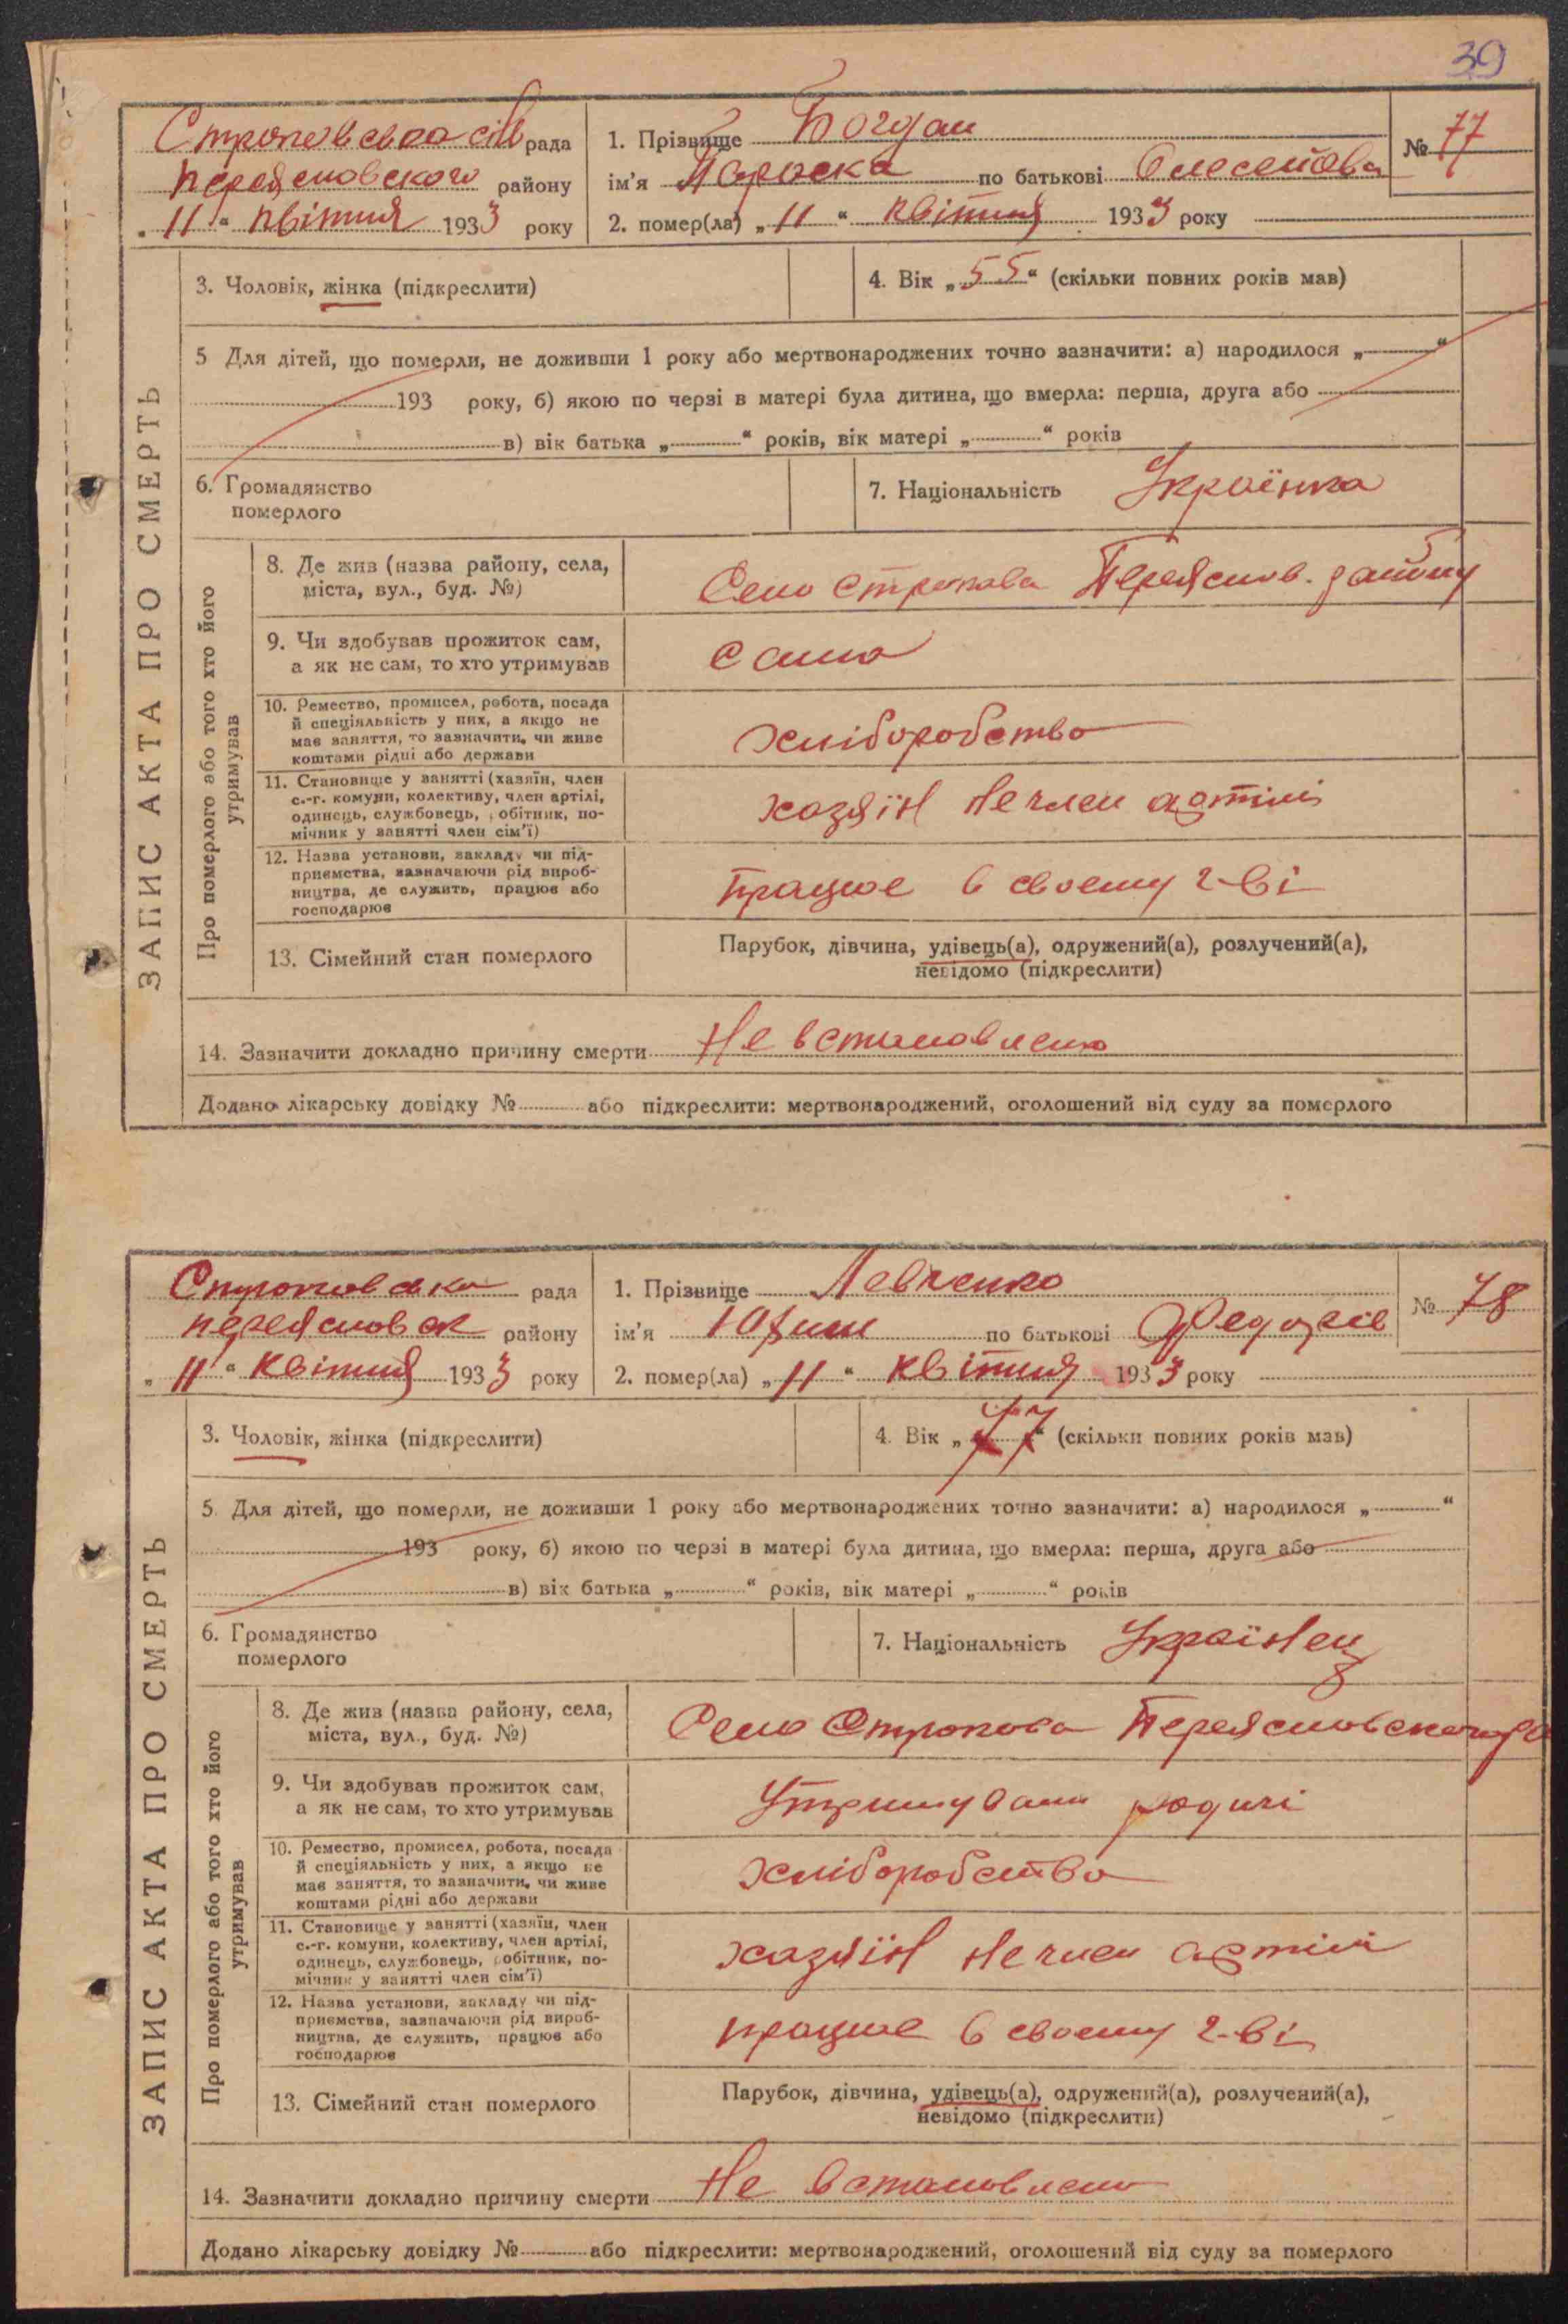 39
Строковська сів рада
Переясловского району
„ 11 “ квітня 1933 року
1. Прізвище Богдан
ім'я Параска по батькові
2. помер(ла) „ 11 “ квітня 1933 року
№ 77
ЗАПИС АКТА ПРО СМЕРТЬ
3. Чоловік, жінка (підкреслити)
4. Вік „ 55 “ (скільки повних років мав)
5 Для дітей, що померли, не доживши 1 року або мертвонароджених точно зазначити: а) народилося „ “
193 року, б) якою по черзі в матері була дитина, що вмерла: перша, друга або
в) вік батька „ “ років, вік матері „ “ років
6. Громадянство
померлого
7. Національність Українка
Про померлого або того хто його
утримував
8. Де жив (назва району, села,
міста, вул., буд. №)
Село Строкова Переяслов. району
9. Чи здобував прожиток сам,
а як не сам, то хто утримував
сама
10. Ремество, промисел, робота, посада
й спеціяльність у них, а якщо не
має заняття, то зазначити, чи живе
коштами рідні або держави
хліборобство
11. Становище у занятті (хазяїн, член
с.-г. комуни, колективу, член артілі,
одинець, службовець, робітник, по-
мічник у занятті член сім'ї)
хазяїн не член артілі
12. Назва установи, закладу чи під-
приємства, зазначаючи рід вироб-
ництва, де служить, працює або
господарює
працює в своему г-ві
13. Сімейний стан померлого
Парубок, дівчина, удівець(а), одружений(а), розлучений(а),
невідомо (підкреслити)
14. Зазначити докладно причину смерти Не встановлено
Додано лікарську довідку № або підкреслити: мертвонароджений, оголошений від суду за померлого
Строковська рада
Переясловск району
„ 11 “ квітня 1933 року
1. Прізвище Левченко
ім'я Юхим по батькові Федорів
2. помер(ла) „ 11 “ квітня 1933 року
№ 78
ЗАПИС АКТА ПРО СМЕРТЬ
3. Чоловік, жінка (підкреслити)
4. Вік „ 77 “ (скільки повних років мав)
5. Для дітей, що померли, не доживши 1 року або мертвонароджених точно зазначити: а) народилося „ “
193 року, б) якою по черзі в матері була дитина, що вмерла: перша, друга або
в) вік батька „ “ років, вік матері „ “ років
6. Громадянство
померлого
7. Національність Українец
Про померлого або того хто його
утримував
8. Де жив (назва району, села,
міста, вул., буд. №)
Село Строкова Переясловского ра
9. Чи здобував прожиток сам,
а як не сам, то хто утримував
Утримували родичі
10. Ремество, промисел, робота, посада
й спеціяльність у них, а якщо не
має заняття, то зазначити, чи живе
коштами рідні або держави
хліборобство
11. Становище у занятті (хазяїн, член
с.-г. комуни, колективу, член артілі,
одинець, службовець, робітник, по-
мічник у занятті член сім'ї)
хазяїн не член артілі
12. Назва установи, закладу чи під-
приємства, зазначаючи рід вироб-
ництва, де служить, працює або
господарює
працює в своему г-ві
13. Сімейний стан померлого
Парубок, дівчина, удівець(а), одружений(а), розлучений(а),
невідомо (підкреслити)
14. Зазначити докладно причину смерти Не встановлено
Додано лікарську довідку № або підкреслити: мертвонароджений, оголошений від суду за померлого